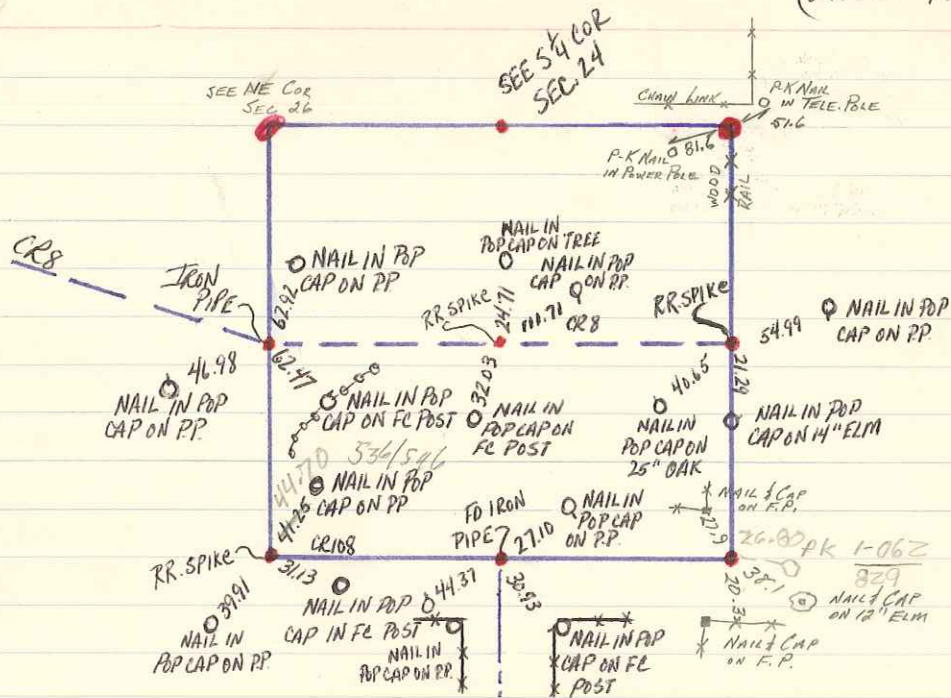 SEE 5 1/4 COR
SEC. 24
SEE NE COR
SEC 26
CHAIN LINK
P.K NAIL
IN TELE. POLE
51.6
81.6
P-K NAIL
IN POWER POLE
WOOD
RAIL
CR8
IRON
PIPE
62.92
NAIL IN POP
CAP ON P.P.
NAIL IN
POP CAP ON TREE
NAIL IN POP
CAP ON P.P.
RR.SPIKE
24.71
CR8
RR.SPIKE
54.99
NAIL IN POP
CAP ON P.P.
46.98
NAIL IN POP
CAP ON P.P.
62.47
NAIL IN POP
CAP ON FC POST
32.03
NAIL IN
POP CAP ON
FC POST
40.65
NAIL IN
POP CAP ON
25" OAK
21.29
NAIL IN POP
CAP ON 14" ELM
44.70
536/546
41.25
NAIL IN POP
CAP ON PP
FD IRON
PIPE
27.10
NAIL IN
POP CAP
ON P.P.
NAIL & CAP
ON F.P.
27.9
26.80
PK 1-062
829
RR. SPIKE
CR108
31.13
39.91
NAIL IN
POP CAP ON P.P.
NAIL IN POP
CAP IN FC POST
44.37
NAIL IN
POP CAP ON P.P.
30.93
NAIL IN POP
CAP ON FC
POST
20.3
38.1
NAIL & CAP
ON 12" ELM
NAIL & CAP
ON F.P.